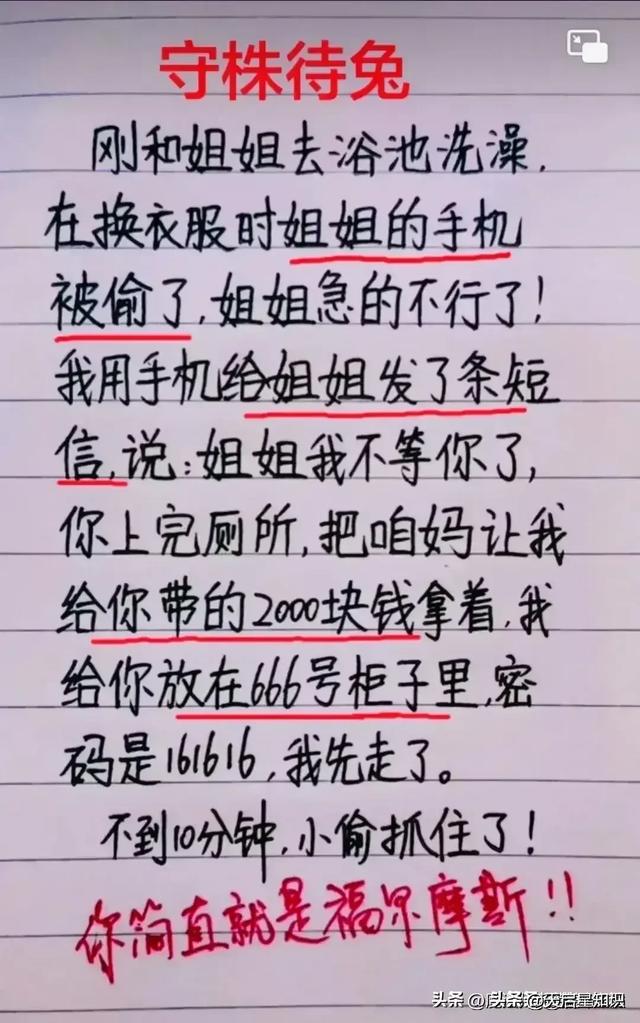 守株待兔
刚和姐姐去浴池洗澡,
在换衣服时姐姐的手机
被偷了,姐姐急的不行了!
我用手机给姐姐发了条短
信,说:姐姐我不等你了,
你上完厕所,把咱妈让我
给你带的2000块钱拿着,我
给你放在666号柜子里,密
码是161616,我先走了。
不到10分钟,小偷抓住了!
你简直就是福尔摩斯!!
头条 @天启星知识